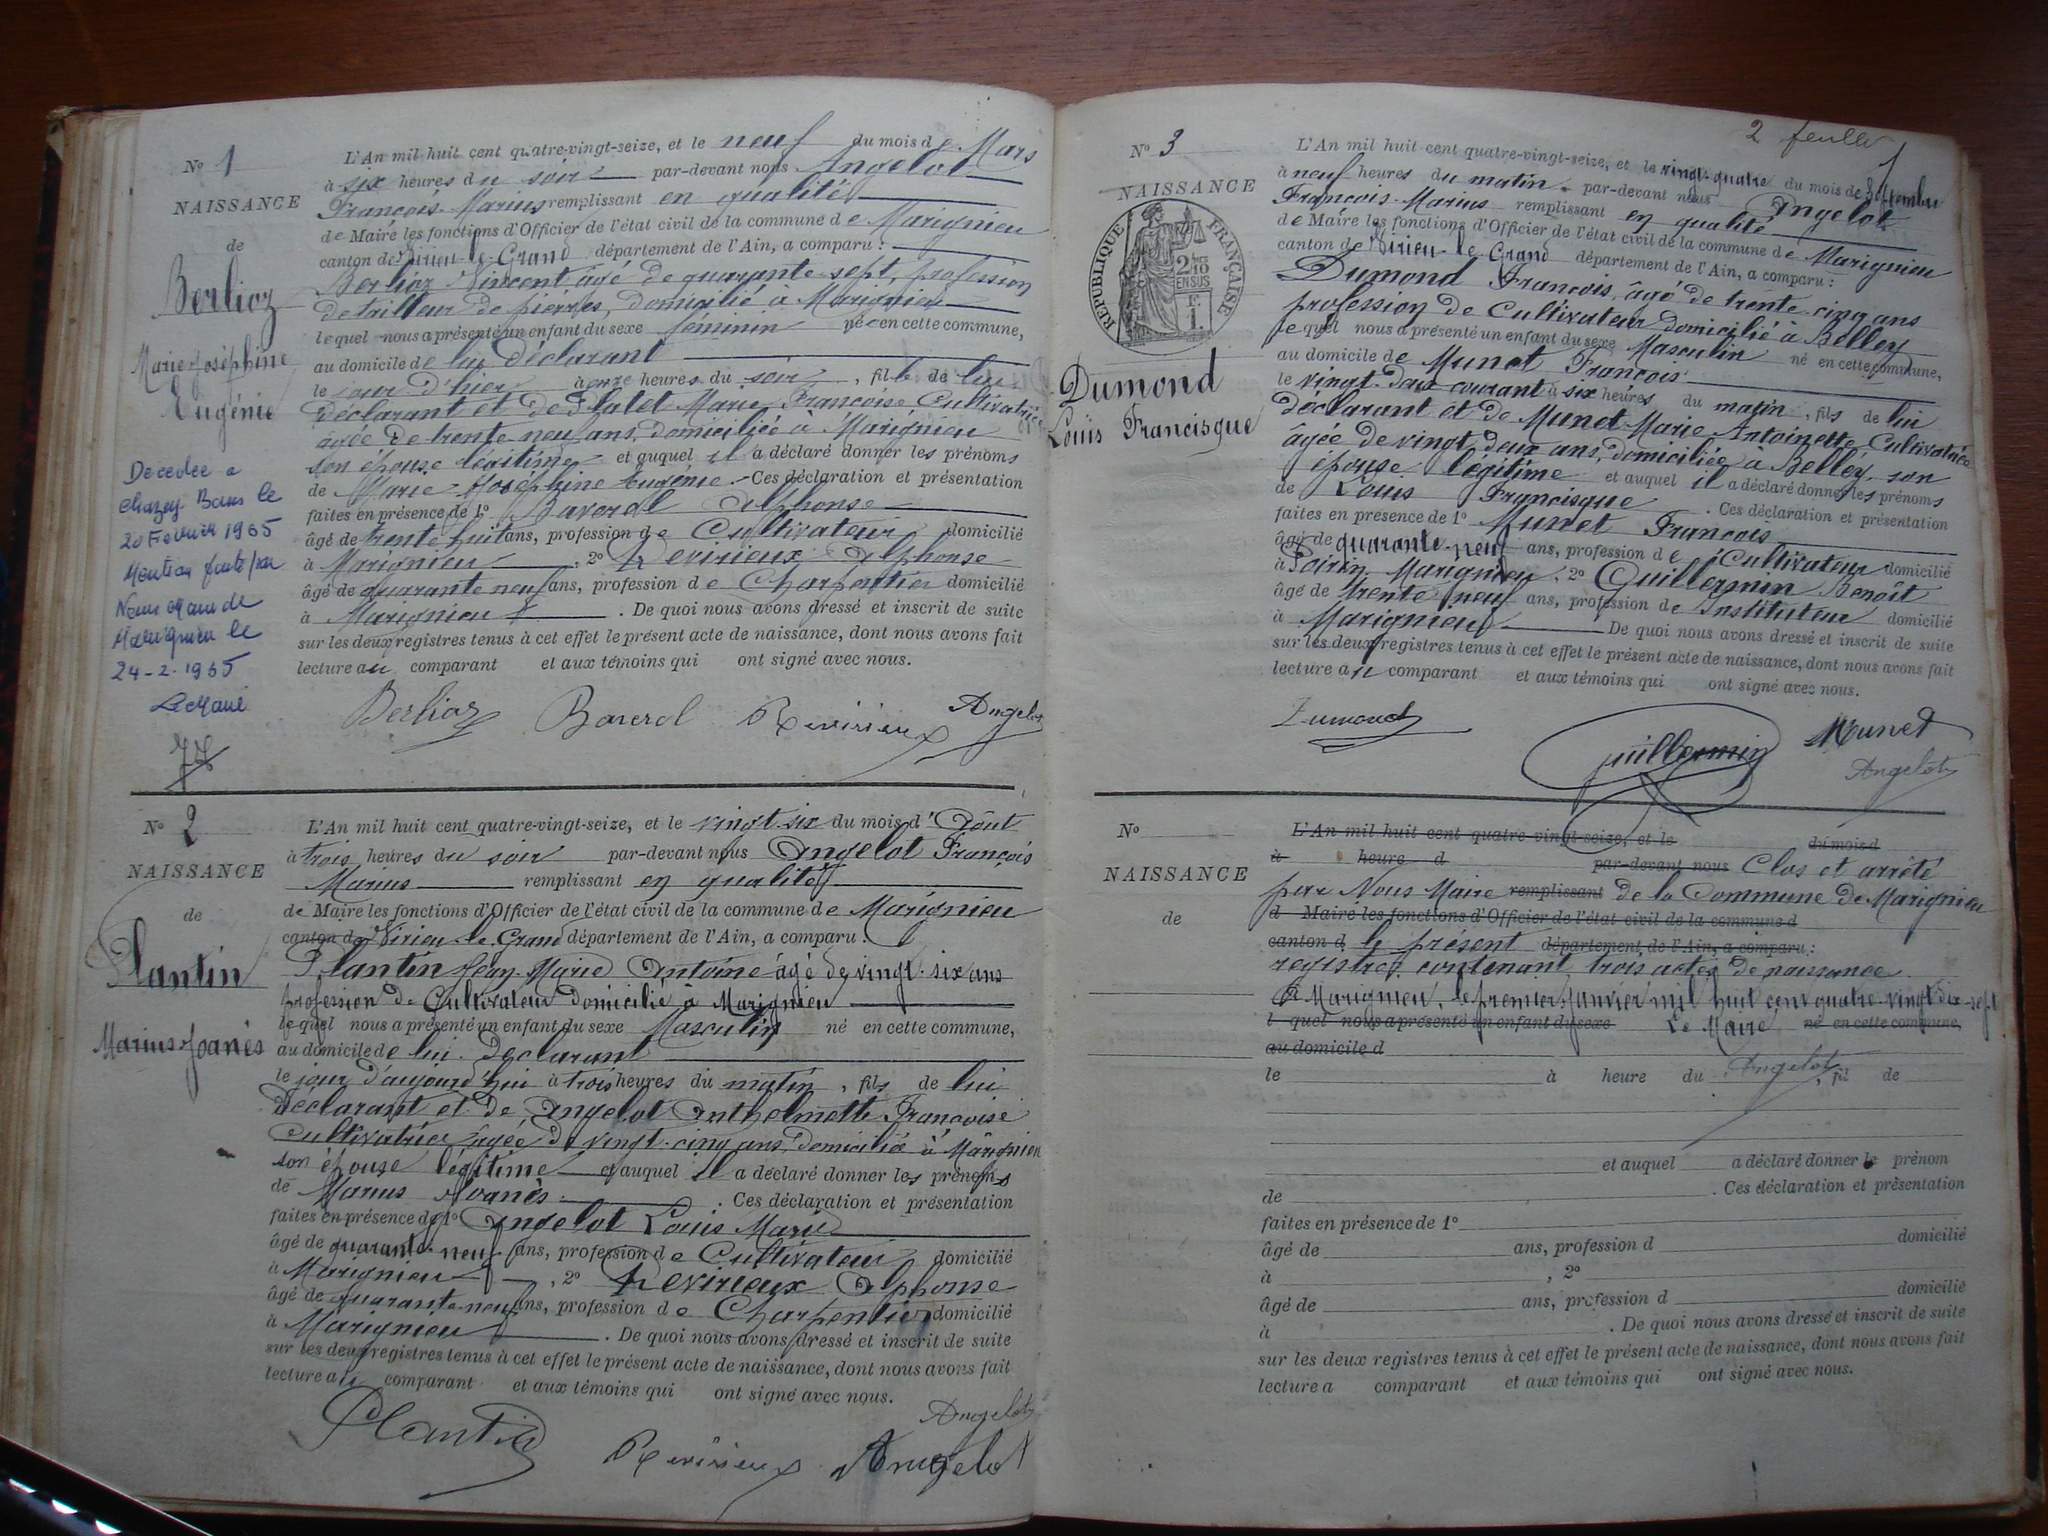 No 1
NAISSANCE
de
Berlioz
Marie Joséphine
Eugénie
Décédée a
Chazey Bons le
20 Février 1965
Mention faite par
Nous Maire de
Marignieu le
24-2-1965
Le Maire
L'An mil huit cent quatre-vingt-seize, et le neuf du mois de Mars
à six heures du soir par-devant nous Angelot
François Marius remplissant en qualité
de Maire les fonctions d'Officier de l'état civil de la commune de Marignieu
canton de Virieu-le-Grand département de l'Ain, a comparu :
Berlioz Vincent âgé de quarante-sept, profession
de tailleur de pierres, domicilié à Marignieu
lequel nous a présenté un enfant du sexe féminin né en cette commune,
au domicile de lui déclarant
le jour d'hier à onze heures du soir, fille de lui
déclarant et de Flutet Marie Françoise Cultivatrice
âgée de trente-neuf ans, domiciliée à Marignieu
son épouse légitime et auquel il a déclaré donner les prénoms
de Marie Joséphine Eugénie. Ces déclaration et présentation
faites en présence de 1° Baverel Alphonse
âgé de trente huit ans, profession de Cultivateur domicilié
à Marignieu, 2° Revirieux Alphonse
âgé de quarante neuf ans, profession de Charpentier domicilié
à Marignieu. De quoi nous avons dressé et inscrit de suite
sur les deux registres tenus à cet effet le présent acte de naissance, dont nous avons fait
lecture au comparant et aux témoins qui ont signé avec nous.
Berlioz Baverel Revirieux Angelot
No 2
NAISSANCE
de
Plantin
Marius Joanès
L'An mil huit cent quatre-vingt-seize, et le vingt-six du mois d'Août
à trois heures du soir par-devant nous Angelot François
Marius remplissant en qualité
de Maire les fonctions d'Officier de l'état civil de la commune de Marignieu
canton de Virieu-le-Grand département de l'Ain, a comparu :
Plantin Jean-Marie Antoine âgé de vingt-six ans
profession de Cultivateur domicilié à Marignieu
lequel nous a présenté un enfant du sexe Masculin né en cette commune,
au domicile de lui déclarant
le jour d'aujourd'hui à trois heures du matin, fils de lui
déclarant et de Angelot Anthelmette Françoise
cultivatrice âgée de vingt-cinq ans, domiciliée à Marignieu
son épouse légitime et auquel il a déclaré donner les prénoms
de Marius Joanès. Ces déclaration et présentation
faites en présence de 1° Angelot Louis Marie
âgé de quarante-neuf ans, profession de Cultivateur domicilié
à Marignieu, 2° Revirieux Alphonse
âgé de quarante-neuf ans, profession de Charpentier domicilié
à Marignieu. De quoi nous avons dressé et inscrit de suite
sur les deux registres tenus à cet effet le présent acte de naissance, dont nous avons fait
lecture au comparant et aux témoins qui ont signé avec nous.
Plantin Revirieux Angelot Angelot
2 feuille
No 3
NAISSANCE
RÉPUBLIQUE FRANÇAISE
2/10 EN SUS
F. 1.
Dumond
Louis Francisque
L'An mil huit cent quatre-vingt-seize, et le vingt-quatre du mois de Septembre
à neuf heures du matin par-devant nous Angelot
François Marius remplissant en qualité
de Maire les fonctions d'Officier de l'état civil de la commune de Marignieu
canton de Virieu-le-Grand département de l'Ain, a comparu :
Dumond François, âgé de trente-cinq ans
profession de Cultivateur domicilié à Belley
lequel nous a présenté un enfant du sexe Masculin né en cette commune,
au domicile de Munet François
le vingt-deux courant à six heures du matin, fils de lui
déclarant et de Munet Marie Antoinette Cultivatrice
âgée de vingt-deux ans, domiciliée à Belley, son
épouse légitime et auquel il a déclaré donner les prénoms
de Louis Francisque. Ces déclaration et présentation
faites en présence de 1° Munet François
âgé de quarante-neuf ans, profession de Cultivateur domicilié
à Poirin Marignieu, 2° Guillermin Benoît
âgé de trente neuf ans, profession de Instituteur domicilié
à Marignieu De quoi nous avons dressé et inscrit de suite
sur les deux registres tenus à cet effet le présent acte de naissance, dont nous avons fait
lecture au comparant et aux témoins qui ont signé avec nous.
Dumond Guillermin Munet
Angelot
No
NAISSANCE
de
L'An mil huit cent quatre-vingt-seize, et le du mois d
à heure d par-devant nous Clos et arrêté
par Nous Maire remplissant de la Commune de Marignieu
d Maire les fonctions d'Officier de l'état civil de la commune d
canton d le présent département de l'Ain, a comparu :
registre contenant trois actes de naissance
A Marignieu, le premier janvier mil huit cent quatre-vingt-dix-sept
l quel nous a présenté un enfant du sexe Le Maire, né en cette commune,
au domicile d
le à heure du Angelot, fil de
et auquel a déclaré donner le prénom
de . Ces déclaration et présentation
faites en présence de 1°
âgé de ans, profession d domicilié
à , 2°
âgé de ans, profession d domicilié
à . De quoi nous avons dressé et inscrit de suite
sur les deux registres tenus à cet effet le présent acte de naissance, dont nous avons fait
lecture a comparant et aux témoins qui ont signé avec nous.